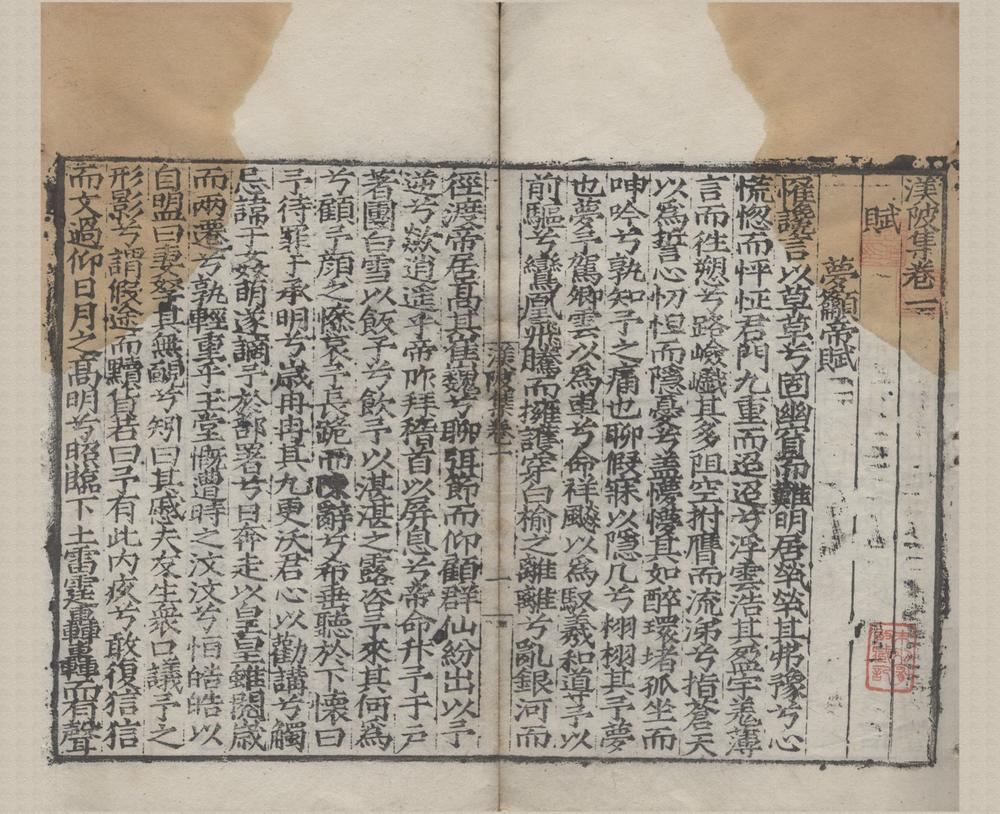 渼陂集卷一
賦
夢籲帝賦
罹讒言以草草兮固幽窅而難明居煢煢其弗豫兮心
慌惚而怦怔君門九重而迢迢兮浮雲浩其盈宇羌薄
言而徃愬兮路嶮巇其多阻空拊膺而流涕兮指蒼天
以為誓心忉怛而隱憂兮盖懜懜其如醉環堵孤坐而
呻吟兮孰知予之痛也聊假寐以隱几兮栩栩其予夢
也夢予駕卿雲以為車兮命祥飈以為馭羲和導予以
前驅兮鸞鳳飛騰而擁護穿白榆之離離兮亂銀河而
渼陂集卷一
一
徑渡帝居髙其崔巍兮聊弭節而仰顧群仙紛出以予
遌兮欻逍遥乎帝所拜稽首以屏息兮帝命升予于户
著團白雪以飯予兮飲予以湛湛之露咨予來其何為
兮顧予顔之慘哀予長跪而陳辭兮希垂聽於下懷曰
予待罪于承明兮歲冉冉其九更沃君心以勸講兮觸
忌諱于姦萌遂謫予於部署兮日奔走以皇皇雖閱歲
而兩遷兮孰輕重乎玉堂慨遭時之汶汶兮恒皓皓以
自盟曰妻孥其無覷兮矧曰其戚夫友生衆口議予之
形影兮謂假途而黷貨若曰予有此内疚兮敢復狺狺
而文過仰日月之髙明兮昭臨下土雷霆轟轟而有聲